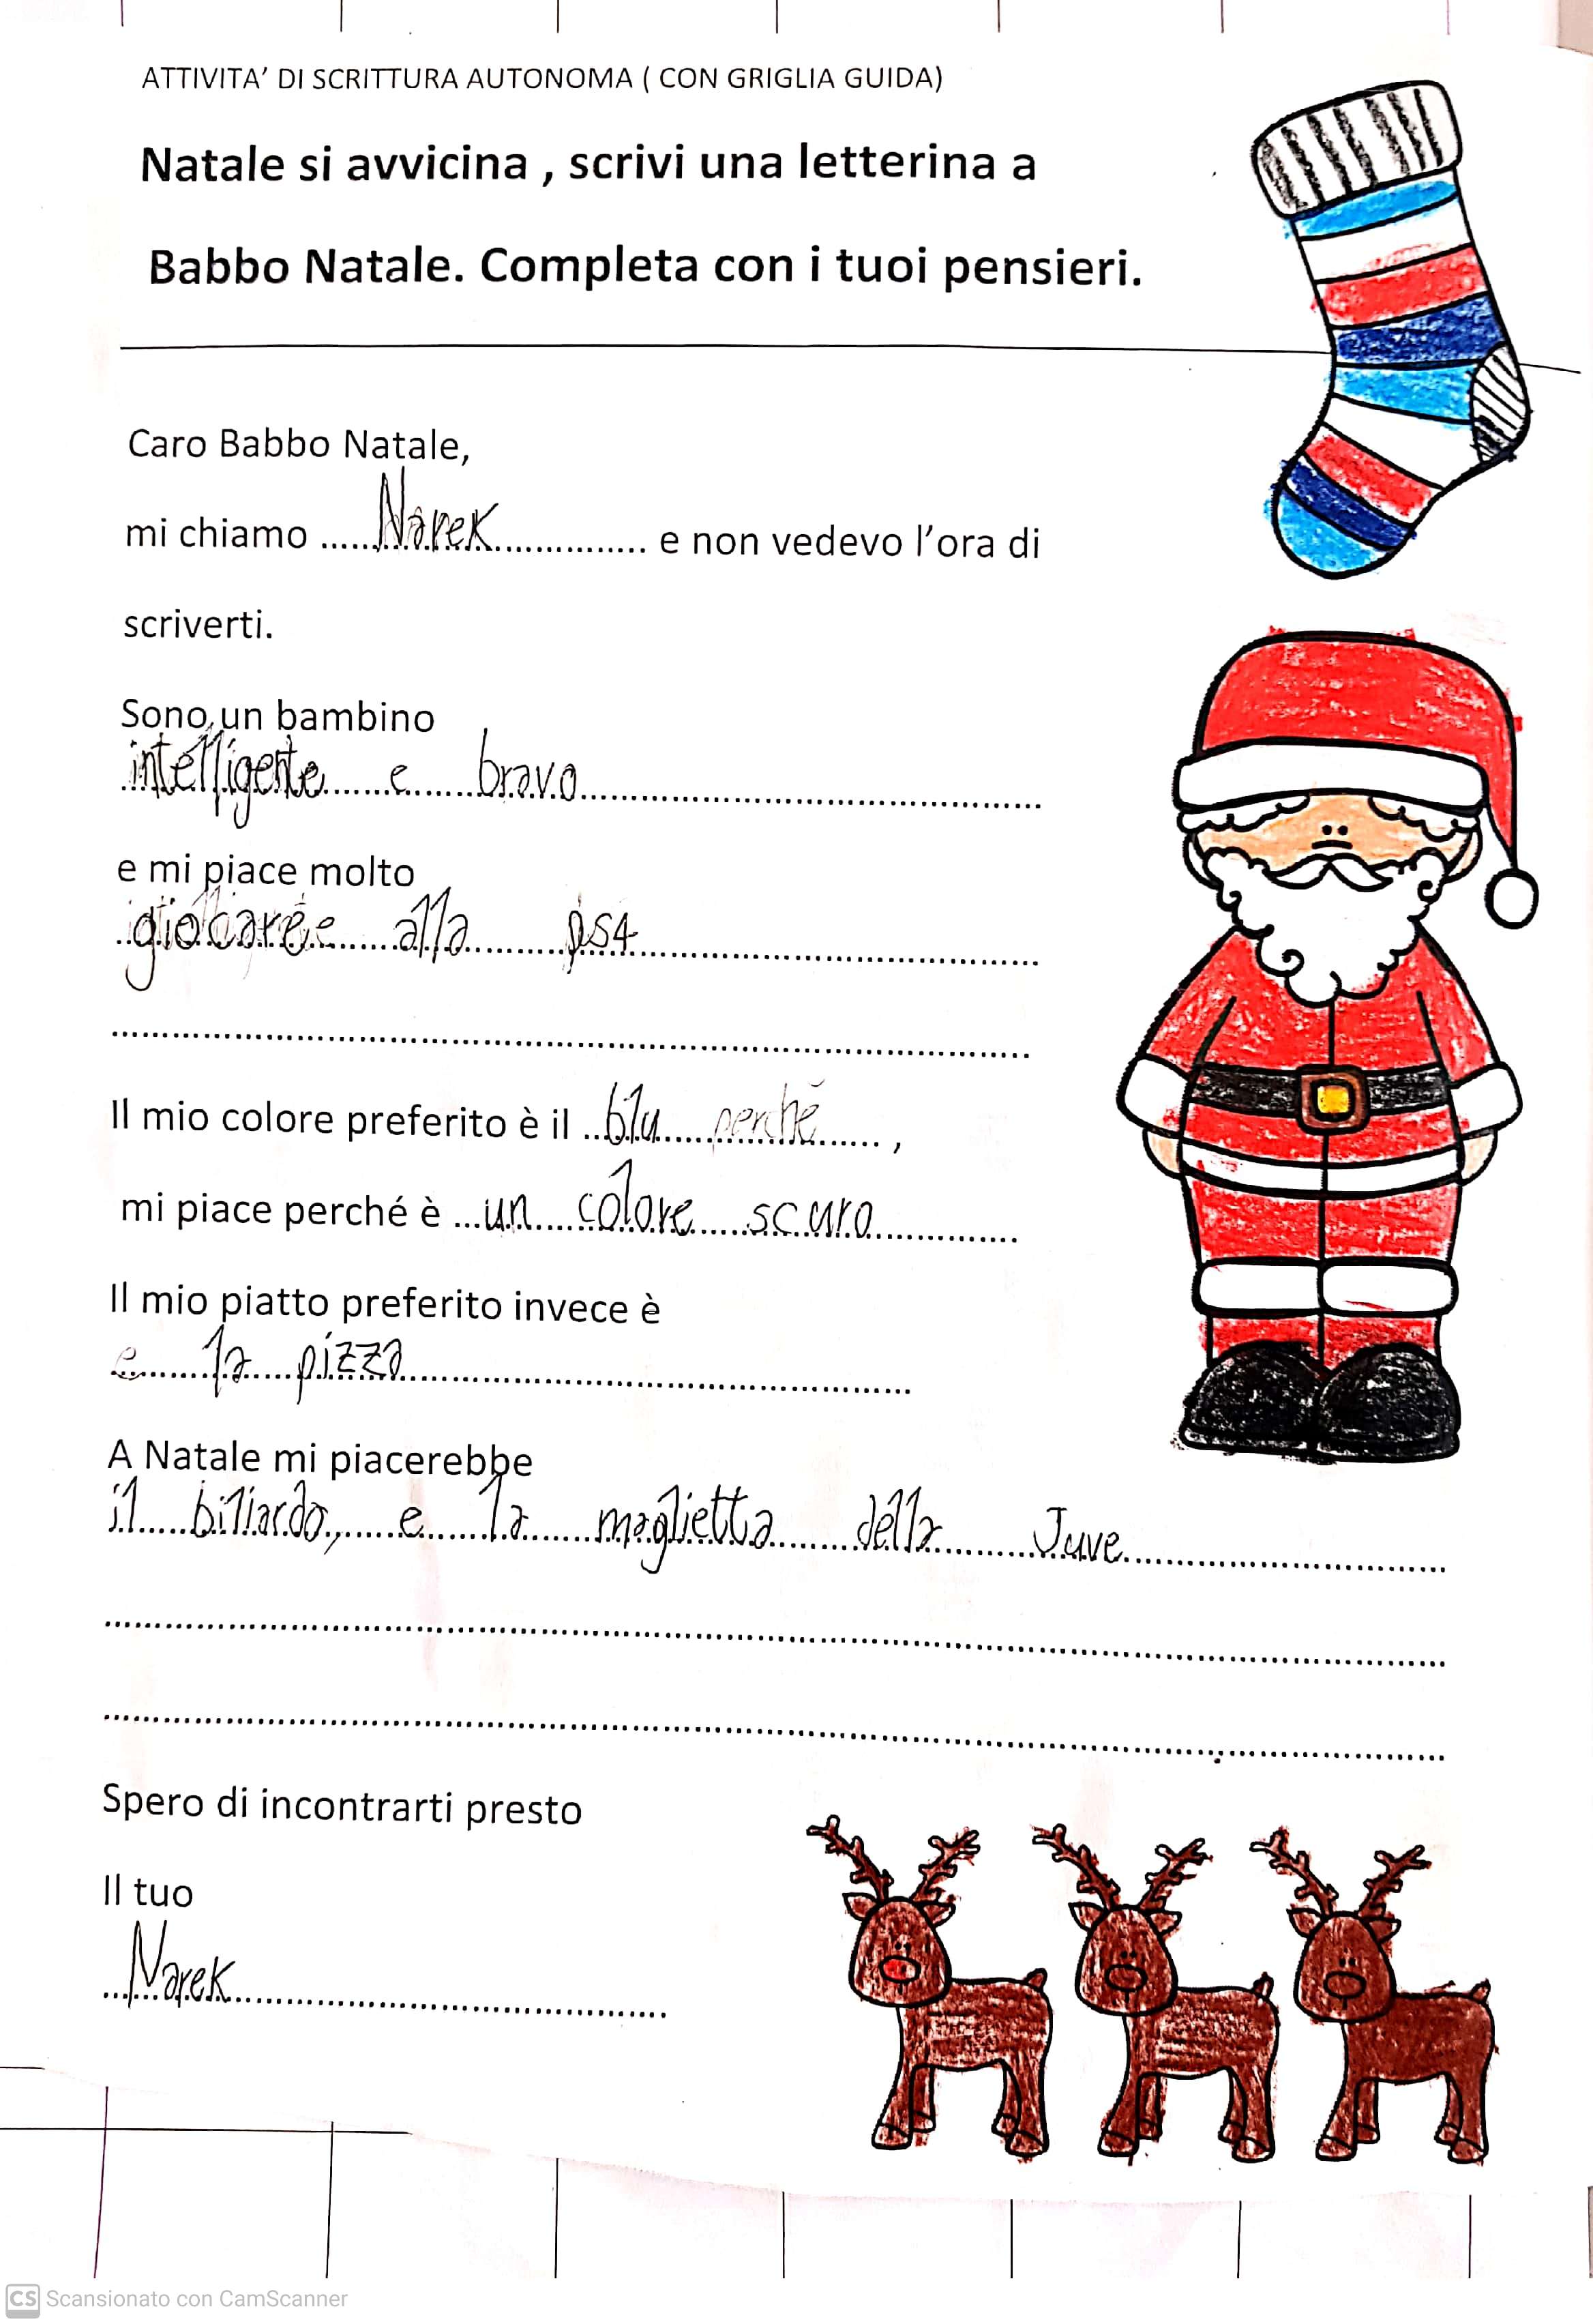 ATTIVITA' DI SCRITTURA AUTONOMA ( CON GRIGLIA GUIDA)
Natale si avvicina , scrivi una letterina a
Babbo Natale. Completa con i tuoi pensieri.
Caro Babbo Natale,
mi chiamo ......Narek.............. e non vedevo l'ora di
scriverti.
Sono un bambino
intelligente e bravo
e mi piace molto
giocare alla ps4
Il mio colore preferito è il blu perché ,
mi piace perché è un colore scuro
Il mio piatto preferito invece è
e la pizza
A Natale mi piacerebbe
il biliardo, e la maglietta della Juve
Spero di incontrarti presto
Il tuo
Narek
CS Scansionato con CamScanner